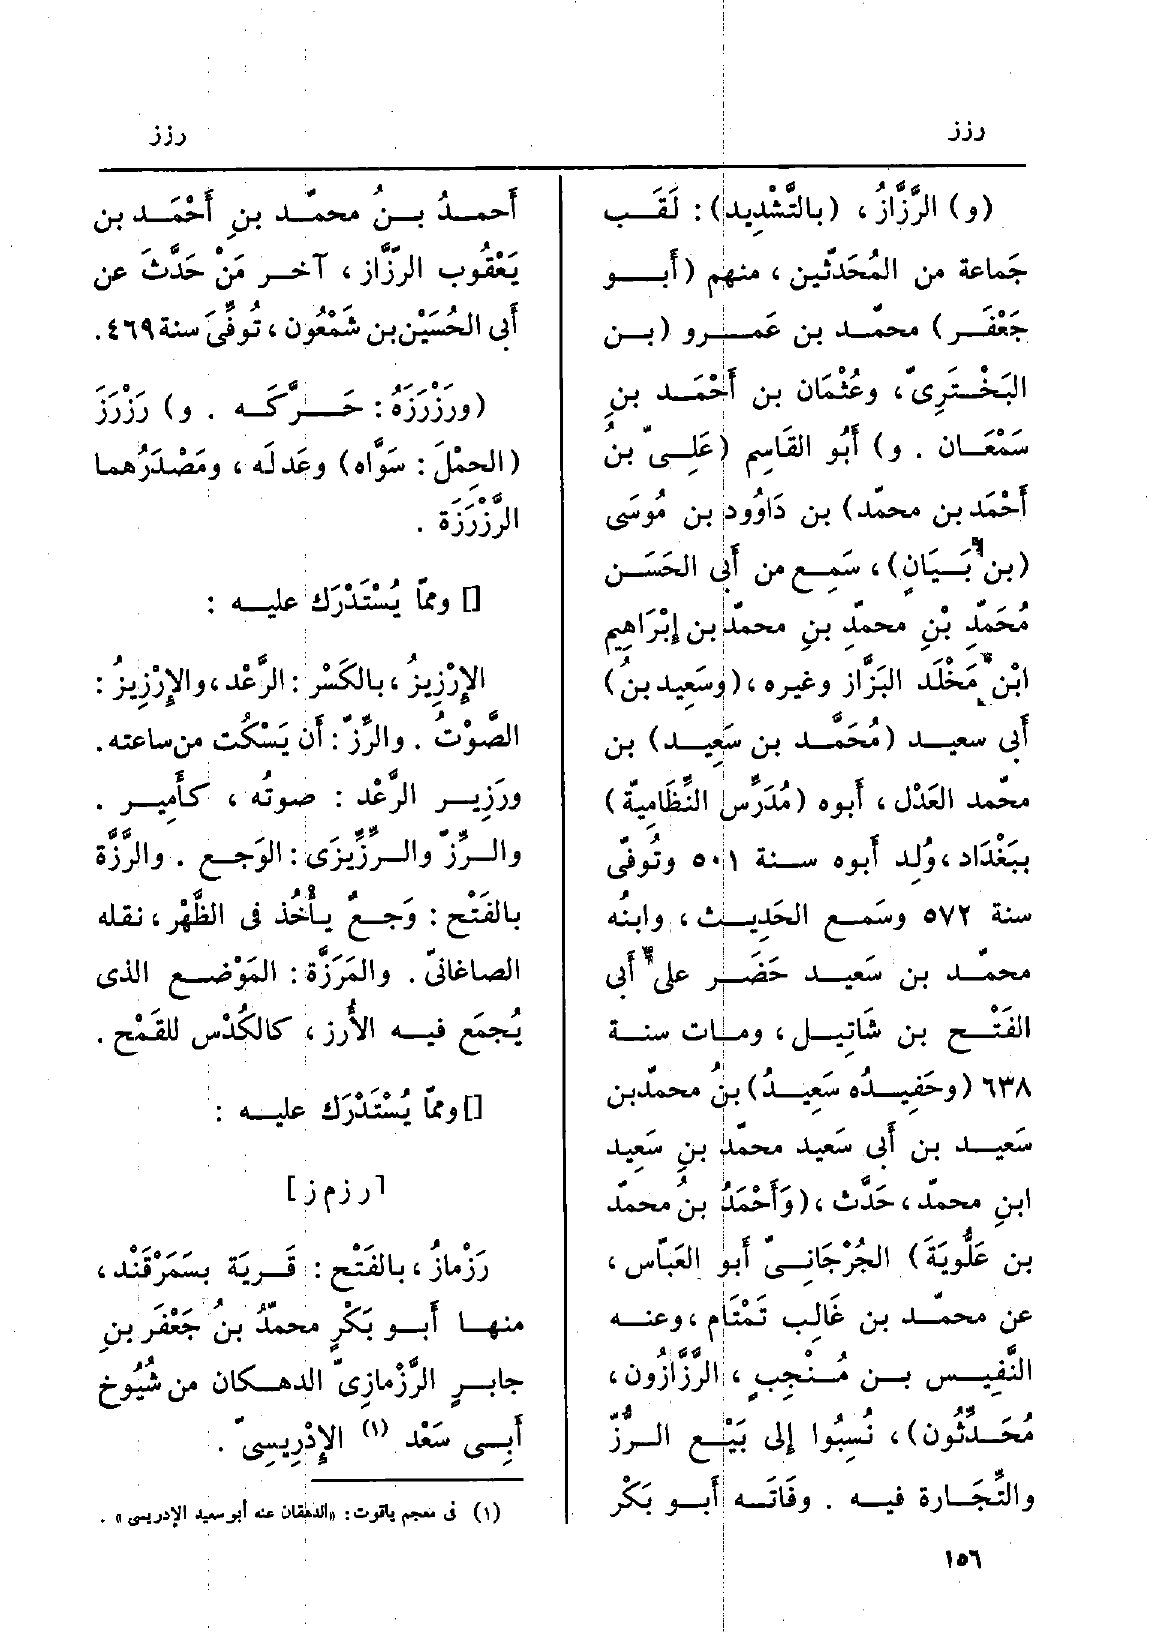 رزز
رزز
(و) الرَّزَّازُ ، (بالتَّشْدِيد) : لَقَب
جَماعة من المُحَدّثين ، منهم (أَبو
جَعْفَر) محمّد بن عَمرو (بن
البَخْتَرِىّ ، وعُثْمَان بن أَحْمَد بنِ
سَمْعَان . و) أَبُو القَاسِم (عَلِىّ بنُ
أَحْمَد بن محمّد) بن دَاوُود بن مُوسَى
(بن بَيَانٍ) ، سَمِع من أَبى الحَسَن
مُحَمَّدِ بْنِ محمّدِ بنِ محمّد بن إِبْرَاهِيم
ابْن مَخْلَد البَزَّاز وغيره ، (وسَعِيد بنُ)
أَبى سعيد (مُحَمَّد بن سَعِيد) بن
محمّد العَدْل ، أَبوه (مُدَرِّس النِّظَامِيّة)
ببَغْدَاد ، وُلِد أَبوه سنة ٥٠١ وتُوفِّى
سنة ٥٧٢ وسَمع الحَدِيث ، وابنُه
محمّد بن سَعِيد حَضَر على أَبى
الفَتْح بن شَاتِيل ، ومات سنة
٦٣٨ (وحَفِيدُه سَعِيدُ) بنُ محمّد بن
سَعِيد بن أَبى سَعيد محمّد بنِ سَعِيد
ابنِ محمّد ، حَدَّث ، (وَأَحْمَدُ بنُ محمّد
بن عَلُّويَةَ) الجُرْجَانِىّ أَبو العَبّاس ،
عن محمّد بن غَالِب تَمْتَام ، وعنه
النَّفِيس بن مُنْجِبٍ ، الرَّزَّازُون ،
مُحَدِّثُون) ، نُسِبُوا إلى بَيْع الرُّزّ
والتِّجَارة فيه . وفَاتَه أَبو بَكْر
أَحمدُ بنُ محمّد بنِ أَحْمَد بن
يَعْقُوب الرَزَّاز ، آخر مَنْ حَدَّثَ عن
أَبى الحُسَيْن بن شَمْعُون ، تُوفِّىَ سنة ٤٦٩ .
(ورَزْرَزَهُ : حَرَّكَه . و) رَزْرَزَ
(الحِمْلَ : سَوَّاه) وعَدلَه ، ومَصْدَرُهما
الرَّزْرَزَة .
[] وممّا يُسْتَدْرَك عليه :
الإِرْزِيزُ ، بالكَسْر : الرَّعْد ، والإِرْزِيزُ :
الصَّوْتُ . والرِّزّ : أَن يَسْكُت من ساعته .
ورَزِير الرَّعْد : صوتُه ، كأَمِير .
والرِّزّ والرِّزِّيزَى : الوَجَع . والرَّزَّة
بالفَتْح : وَجَعٌ يأْخُذ فى الظَّهْر ، نقله
الصاغانىّ . والمَرَزَّة : المَوْضع الذى
يُجمَع فيه الأَرز ، كالكُدْس للقَمْح .
[] وممّا يُسْتَدْرَك عليه :
[رزم ز]
رَزْمازُ ، بالفَتْح : قَرية بسَمَرْقَنْد ،
منها أَبو بَكْرٍ محمّدُ بنُ جَعْفَر بنِ
جابرٍ الرَّزْمازِىّ الدهكان من شُيُوخ
أَبِى سَعْد (١) الإِدْرِيسِىّ .
(١) فى معجم ياقوت : «الدهقان عنه أبو سعيد الإدريسى» .
١٥٦